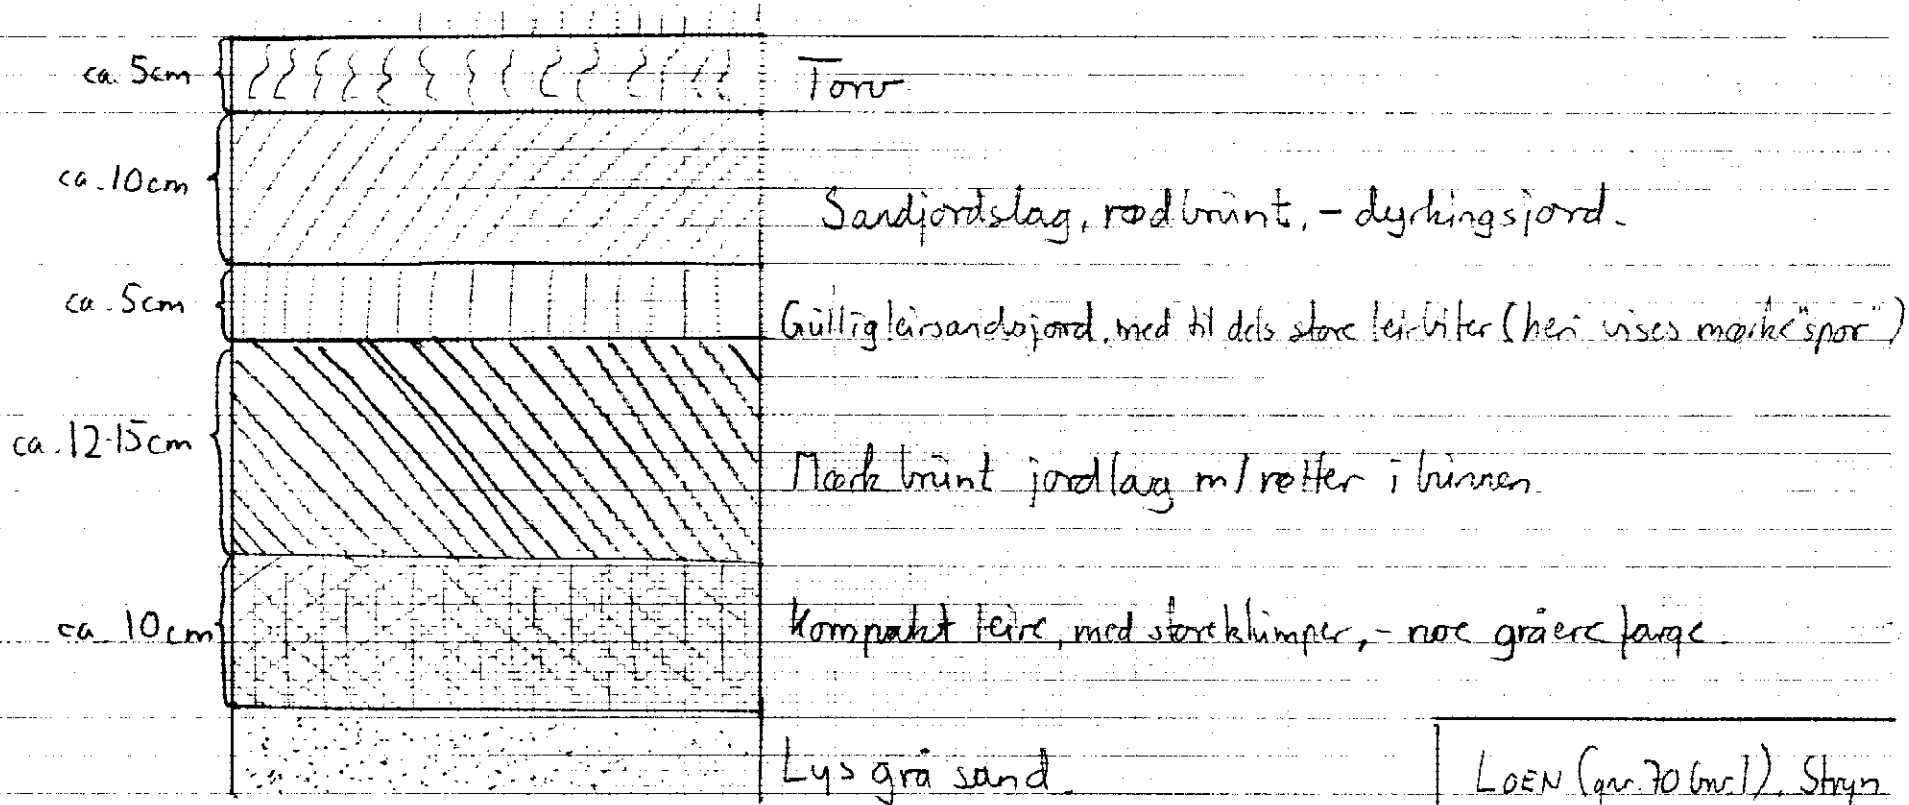 ca. 5cm Torv
ca. 10cm Sandjordslag, rødbrunt, - dyrkingsjord.
ca. 5cm Gullig leirsandsjord, med til dels store leirbiter (heri vises mørke "spor")
ca. 12-15cm Mørk brunt jordlag m/røtter i bunnen.
ca. 10cm Kompakt leire, med store klumper, - noe gråere farge.
Lys grå sand.
LOEN (gnr. 70 bnr. 1), Stryn